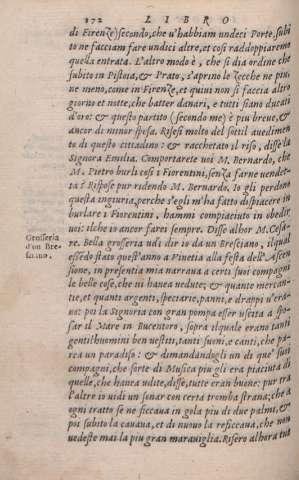 172 LIBRO
di Firenze) secondo, che u'habbiam undeci Porte, subi
to ne facciam fare undici altre, et cosi raddoppiaremo
quella entrata. L'altro modo è, che si dia ordine che
subito in Pistoia, & Prato, s'aprino le Zecche ne piu,
ne meno, come in Firenze, et quiui non si faccia altro
giorno et notte, che batter danari, e tutti siano ducati
d'oro: & questo partito (secondo me) è piu breue, &
ancor di minor spesa. Risesi molto del sottil auedimen
to di questo cittadino: & racchetato il riso, disse la
Signora Emilia. Comportarete voi M. Bernardo, che
M. Pietro burli cosi i Fiorentini, senza farne vendet-
ta? Rispose pur ridendo M. Bernardo. Io gli perdono
questa ingiuria, perche s'egli m'ha fatto dispiacere in
burlare i Fiorentini, hammi compiaciuto in obedir
uoi: ilche io ancor farei sempre. Disse alhor M. Cesa-
re. Bella grosseria udi dir io da un Bresciano, ilqual
essedo stato quest'anno a Vinetia alla festa dell'Ascen
sione, in presentia mia narraua a certi suoi compagni
le belle cose, che ui hauea vedute; & quante mercan-
tie, et quanti argenti, speciarie, panni, e drappi u'era-
no: poi la Signoria con gran pompa esser uscita a spo-
sar il Mare in Bucentoro, sopra ilquale erano tanti
gentilhuomini ben uestiti, tanti suoni, e canti, che pa-
rea un paradiso: & dimandandogli un di que' suoi
compagni, che sorte di Musica piu gli era piaciuta di
quelle, che hauea udite, disse, tutte eran buone: pur tra
l'altre io uidi un sonar con certa tromba strana; che a
ogni tratto se ne ficcaua in gola piu di due palmi, &
poi subito la cauaua, et di nuouo la reficcaua, che non
uedeste mai la piu gran marauiglia. Risero alhora tut
Grosseria
d'un Bre-
sciano.